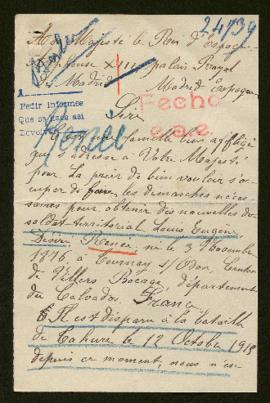 24/39
A sa Majesté le Roi d'Espagne
Alphonse XIII palais Royal
Madrid Madrid Espagne
Pedir informes
Que se hace así
Devolver
Fecho
Sire
une famille bien affligée
qui s'adresse à Votre Majesté
pour La prier de bien vouloir s'oc-
cuper de faire les démarches néces-
saires pour obtenir des nouvelles du
soldat territorial Louis Eugène
Désiré né le 3 Novembre
1876, à Tournay s/Odon Canton
de Villers Bocage, département
du Calvados. France
Il est disparu à la bataille
de Tahure le 12 Octobre 1915
depuis ce moment, nous n'en-